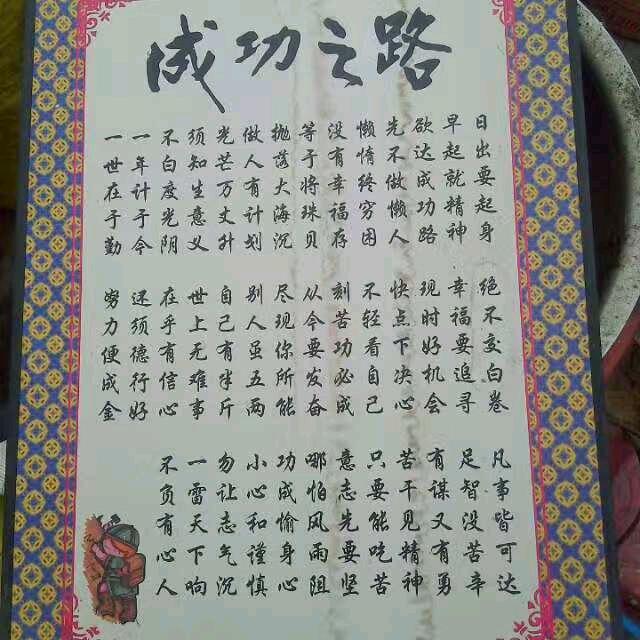 成功之路
日出要起身
早起就精神
欲达成功路
先不做懒人
懒惰终穷困
没有幸福存
等于将珠贝
抛落大海沉
做人有计划
光芒万丈升
须知生意义
不白度光阴
一年计于今
一世在于勤
绝不交白卷
幸福要追寻
现时好机会
快点下决心
不轻看自己
刻苦功必成
从今要发奋
尽现你所能
别人虽五两
自己有半斤
世上无难事
在乎有信心
还须德行好
努力便成金
凡事皆可达
足智没苦辛
有谋又有勇
苦干见精神
只要能吃苦
意志先要坚
哪怕风雨阻
功成愉身心
小心和谨慎
勿让志气沉
一雷天下响
不负有心人